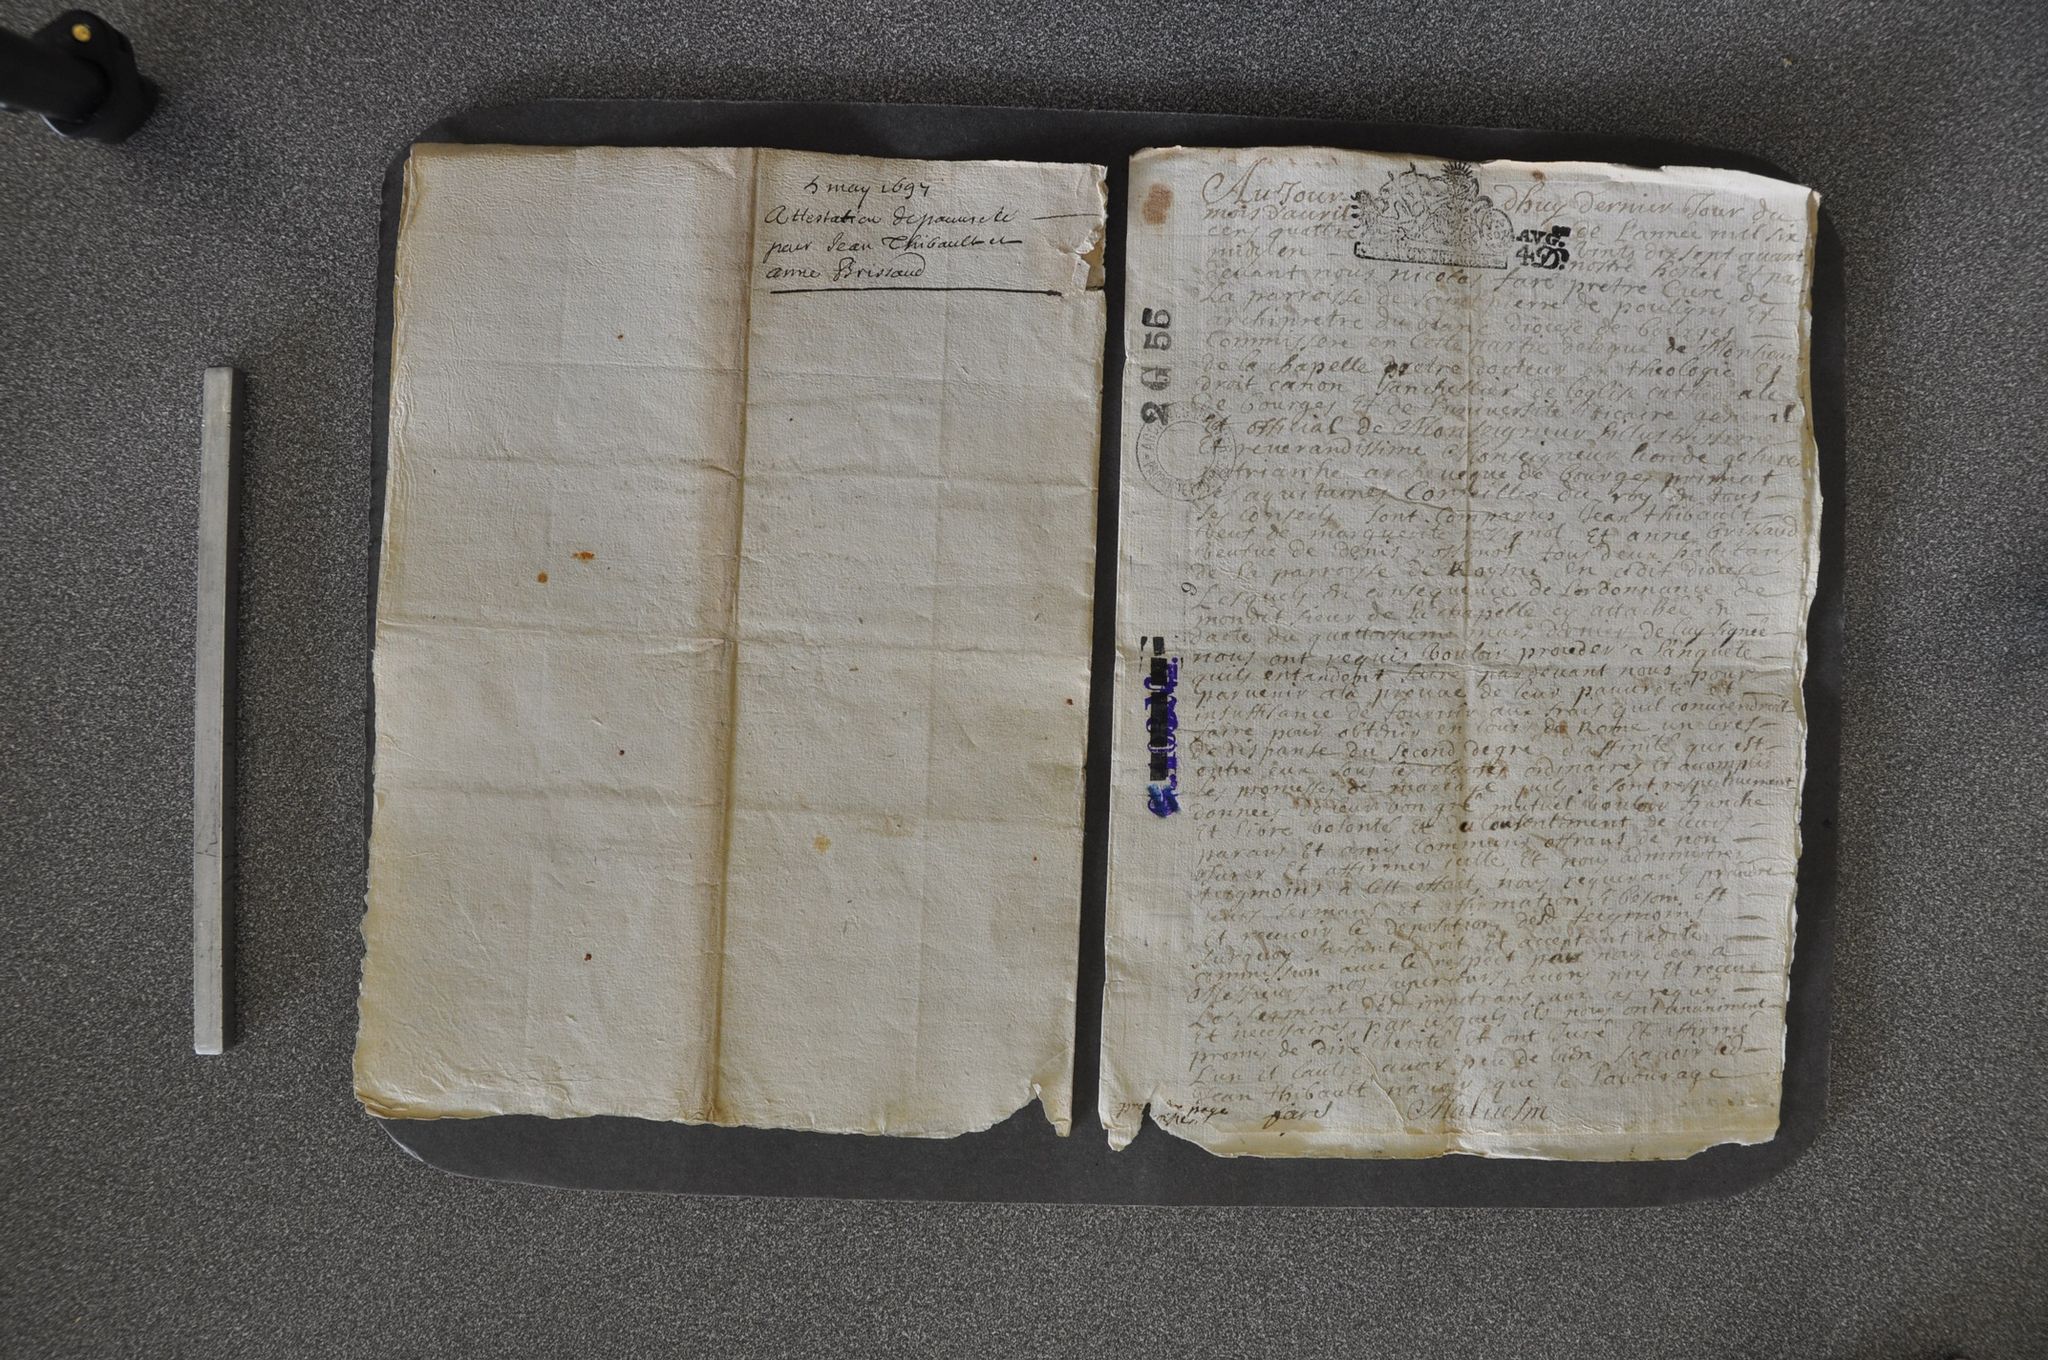 5 may 1697
Attestation de pauureté
pour Jean Thibault et
anne Brissaud
AuJour dhuy dernier Jour du
mois d'auril de L'année mil six
cens quattre vints dix sept auant
midy en nostre hostel Et par
deuant nous nicolas fare pretre Cure de
La parroisse de saint pierre de pouligni Et
archipretre du blanc diocese de bourges
Commissere en Cette partie delegué de Monsieur
de la chapelle pretre docteur en theologie Et
droit canon chanchellier de leglise cathedrale
de bourges Et de Luniuersité vicaire general
Et official de Monseigneur Illustrissime
Et reuerandissime Monseigneur leon de gesure
patriarche archeueque de bourges primat
des aquitaines Conseiller du roy en tous
ses conseils sont Comparus Jean thibault
veuf de marguerite rossignol Et anne brissaud
veufue de denis rossignol tous deux habitans
de la parroisse de Roysne en cedit diocese
Lesquels en consequence de Lordonnance de
mondit sieur de la chapelle cy attachée en
datte du quattorsieme mars dernier de luy signée
nous ont requis vouloir proceder a Lanquete
quils entandent faire pardeuant nous pour
paruenir a la preuue de leur pauureté et
insuffisance de fournir aux frais quil conuiendroit
faire pour obtenir en cour de Rome un bref
de dispanse du second degré d'affinité qui est
entre eux sous les clauses ordinaires Et accomplir
les promesses de mariage quils se sont respectiuement
données de leur bon gré mutuel vouloir franche
Et libre volonté Et du consentiment de leurs
parans Et amis communs offrans de nous
Jurer Et affirmer icelle Et nous administrer
tesgmoins a cett effect, nous requerants prandre
leurs sermans Et affirmation si besoin est
Et receuoir le deposition desd tesgmoins
surquoy faisant droit Et acceptant ladite
commission auec le respect par nous deu a
Messieurs nos superieurs, auons pris Et receu
Le serment desd impetrans aux cas requis
Et necessaires, par lesquels ils nous ont unanimement
promis de dire verité Et ont Juré Et affirmé
Lun et lautre auoir peu de bien scauoir led
Jean thibault n'auoir que le labourage
page fare Maluesin
AVG.
4 D.
2 G 55
9